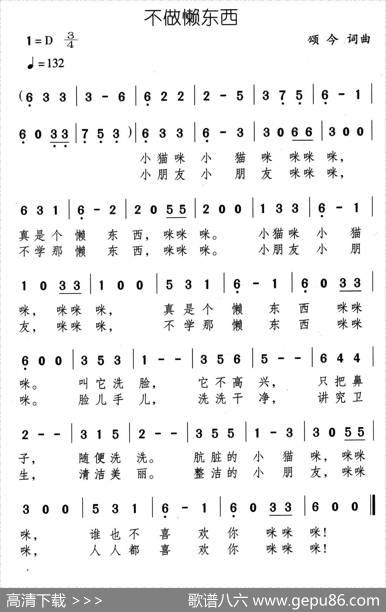 不做懒东西
1=D 3/4
颂今 词曲
♩=132
(6 3 3 | 3 - 6 | 6 2 2 | 2 - 5 | 3 7 5 | 6 - 1 |
6 0 3 3 | 7 5 3 ) | 6 3 3 | 6 - 3 | 3 0 6 6 | 3 0 0 |
小猫咪 小 猫 咪 咪咪 咪,
小朋友 小 朋 友 咪咪 咪,
6 3 1 | 6 - 2 | 2 0 5 5 | 2 0 0 | 1 3 3 | 6 - 1 |
真是个 懒 东 西, 咪咪 咪。 小猫咪 小 猫
不学那 懒 东 西, 咪咪 咪。 小朋友 小 朋
1 0 3 3 | 1 0 0 | 5 3 1 | 6 - 1 | 6 0 3 3 |
咪, 咪咪 咪, 真是个 懒 东 西 咪咪
友, 咪咪 咪, 不学那 懒 东 西 咪咪
6 0 0 | 3 5 3 | 1 - - | 3 5 5 | 5 - - | 6 4 4 |
咪。 叫它洗 脸, 它不高 兴, 只把鼻
咪。 脸儿手 儿, 洗洗干 净, 讲究卫
2 - - | 3 1 5 | 2 - - | 5 3 5 | 6 - 5 | 3 0 5 5 |
子, 随便洗 洗。 肮脏的 小 猫 咪, 咪咪
生, 清洁美 丽。 整洁的 小 朋 友, 咪咪
3 0 0 | 5 3 1 | 6 - 1 | 6 0 3 3 | 6 0 0 ‖
咪, 谁也不 喜 欢 你 咪咪 咪!
咪, 人人都 喜 欢 你 咪咪 咪!
高清下载 >>>>> 歌谱八六 www.gepu86.com